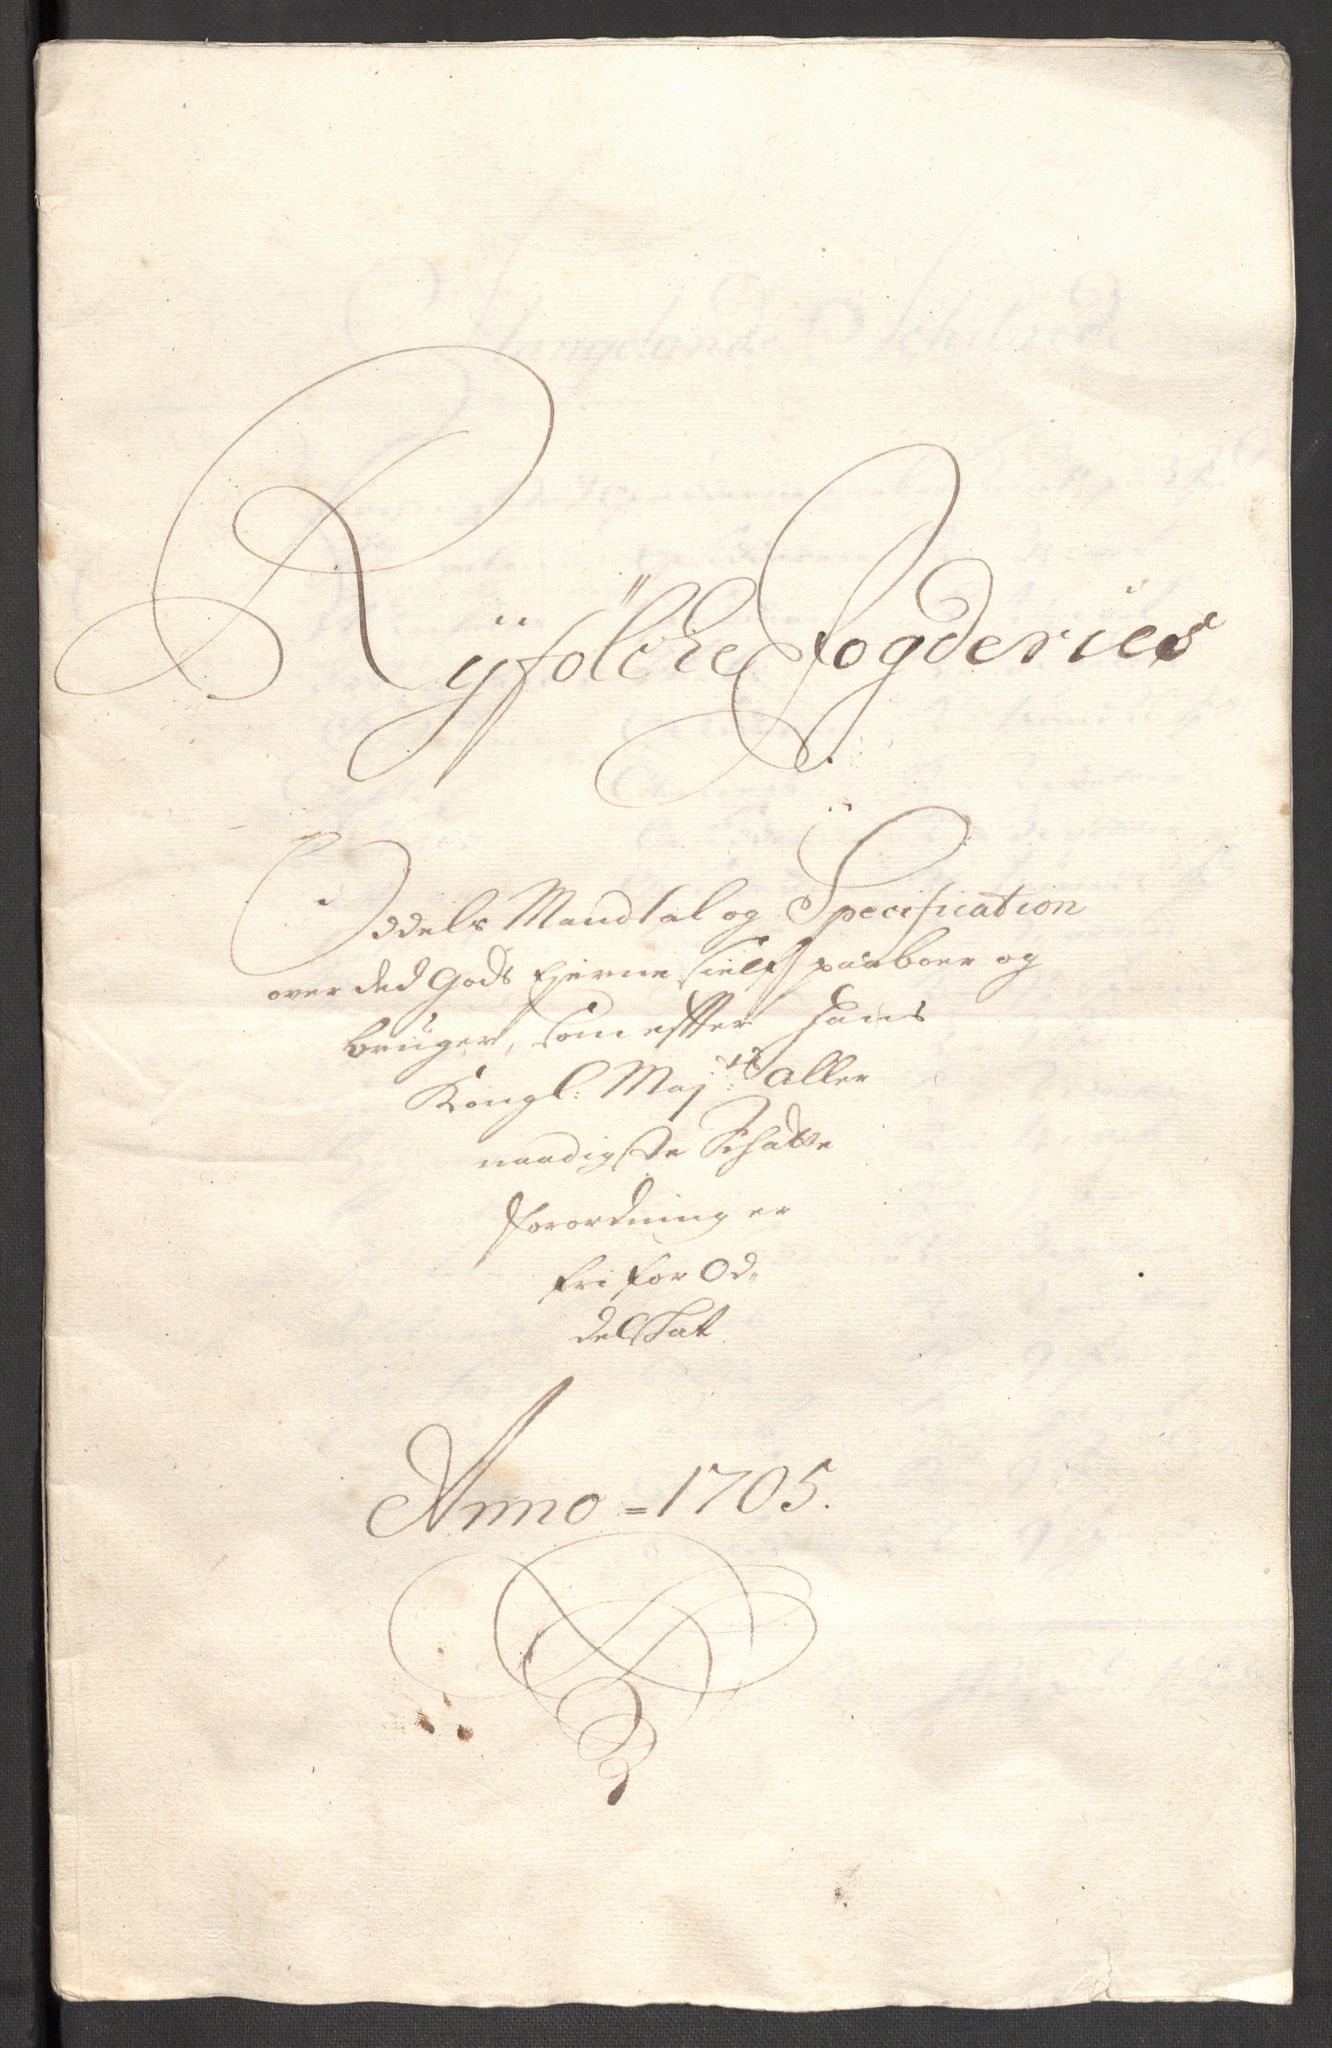 Rÿfölcke Fogderies
Oddels Mandtal og Specification
over ded Gods Ejerne sielf paaboer og
bruger, som effter Hans
Kongl: Maj:ts aller
naadigste Schatte
forordning er
fri for Od„
delskat
Anno = 1705.